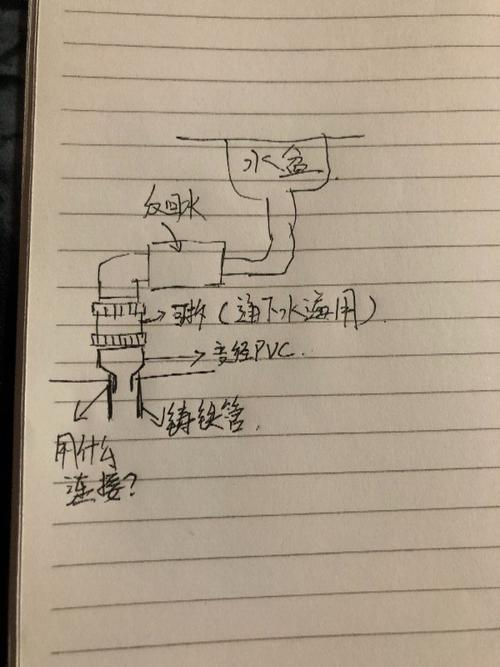 水盆
反回水
可拆（通下水道用）
变经PVC.
铸铁管.
用什么
连接？